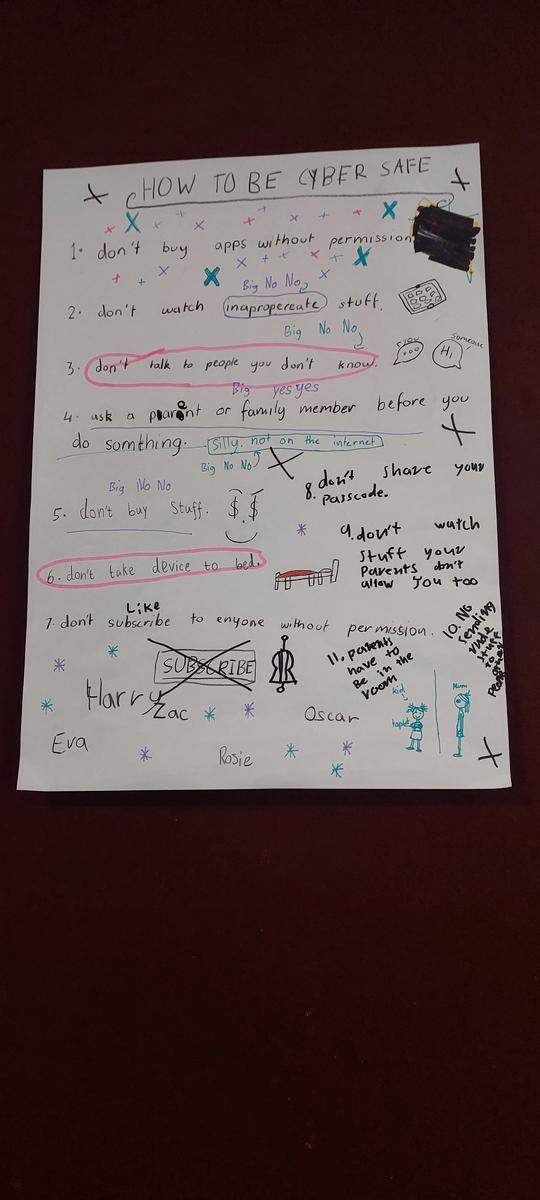 HOW TO BE CYBER SAFE
1. don't buy apps without permission
Big No No
2. don't watch inapropereate stuff.
Big No No
3. don't talk to people you don't know.
Hi,
Someone
Big yes yes
4. ask a parent or family member before you
do somthing. Silly. not on the internet
Big No No
Big No No
5. don't buy Stuff. $.$
6. don't take device to bed.
8. don't share your
Passcode.
9. don't watch
stuff your
Parents don't
allow you too
Like
7. don't subscribe to enyone without permission.
SUBSCRIBE
10. No
sending
rude
stuff
to
People
11. parents
have to
Be in the
room
kid
tablet
Mum
Harry
Zac
Oscar
Eva
Rosie